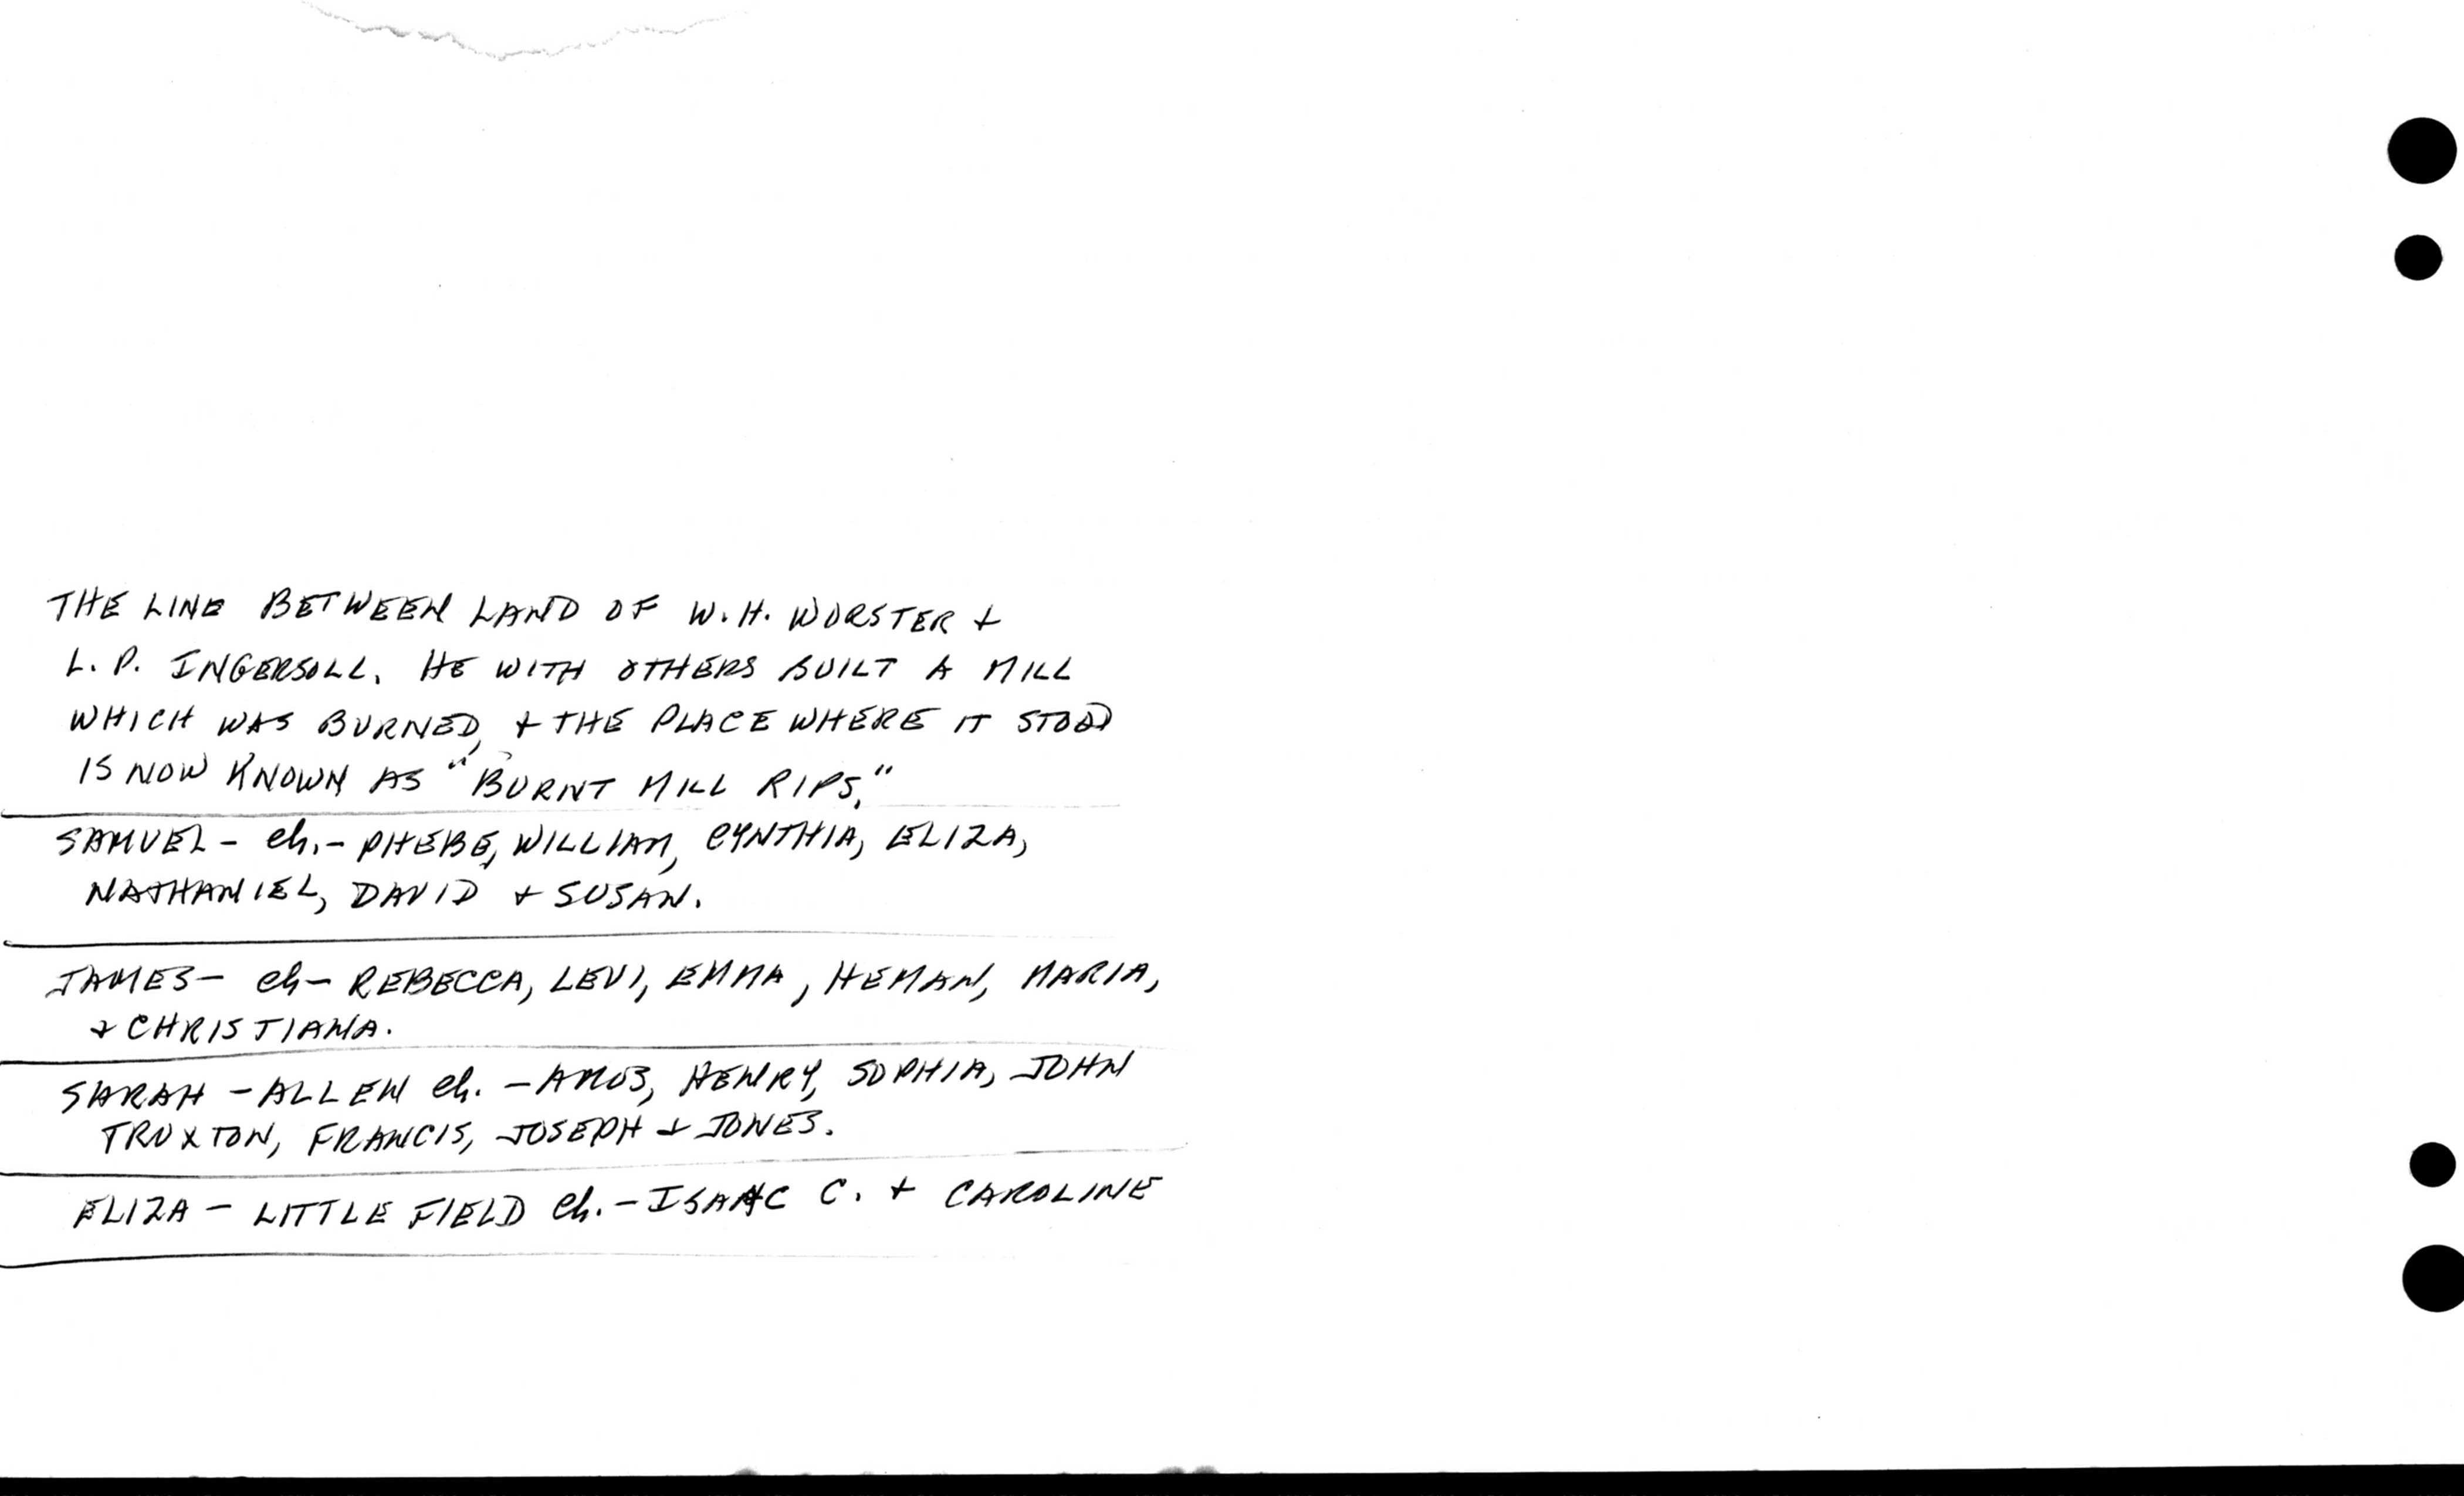 THE LINE BETWEEN LAND OF W.H. WORSTER +
L. P. INGERSOLL. HE WITH OTHERS BUILT A MILL
WHICH WAS BURNED, + THE PLACE WHERE IT STOOD
IS NOW KNOWN AS "BURNT MILL RIPS."
SAMUEL - Ch. - PHEBE, WILLIAM, CYNTHIA, ELIZA,
NATHANIEL, DAVID + SUSAN.
JAMES - Ch - REBECCA, LEVI, EMMA, HEMAN, MARIA,
+ CHRISTIANA.
SARAH - ALLEN Ch. - AMOS, HENRY, SOPHIA, JOHN
TRUXTON, FRANCIS, JOSEPH + JONES.
ELIZA - LITTLE FIELD Ch. - ISAAC C. + CAROLINE